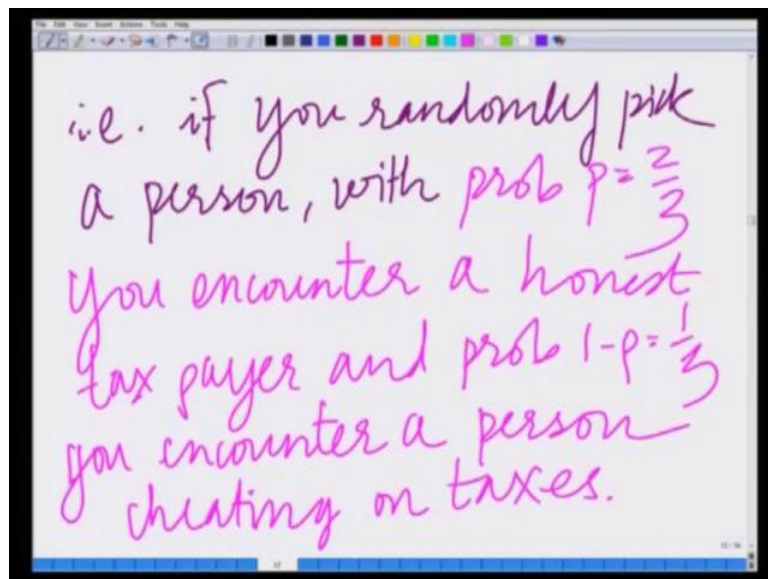 File Edit View Insert Actions Tools Help
i.e. if you randomly pick
a person, with prob p = 2/3
you encounter a honest
tax payer and prob 1-p = 1/3
you encounter a person
cheating on taxes.